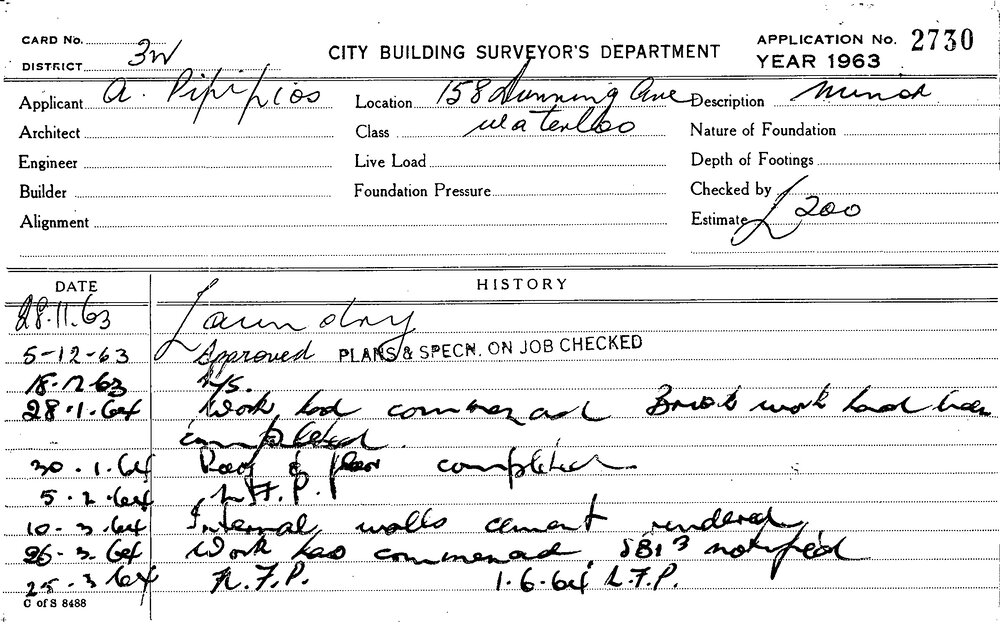 CARD No.
DISTRICT 3W
CITY BUILDING SURVEYOR'S DEPARTMENT
APPLICATION No. 2730
YEAR 1963
Applicant A. Pipipios Location 158 Dunning Ave Description Minor
Architect Class Waterloo Nature of Foundation
Engineer Live Load Depth of Footings
Builder Foundation Pressure Checked by
Alignment Estimate £200
DATE HISTORY
28.11.63 Laundry
5-12-63 Approved PLANS & SPECN. ON JOB CHECKED
18.12.63 N/S.
28.1.64 Work had commenced Brick work had been
completed.
30.1.64 Roof & floor completed.
5.2.64 N.F.P.
10-3.64 Internal walls cement rendered
26-3.64 Work has commenced SBI 3 notified
25.3.64 N.F.P. 1.6.64 N.F.P.
C of S 8488